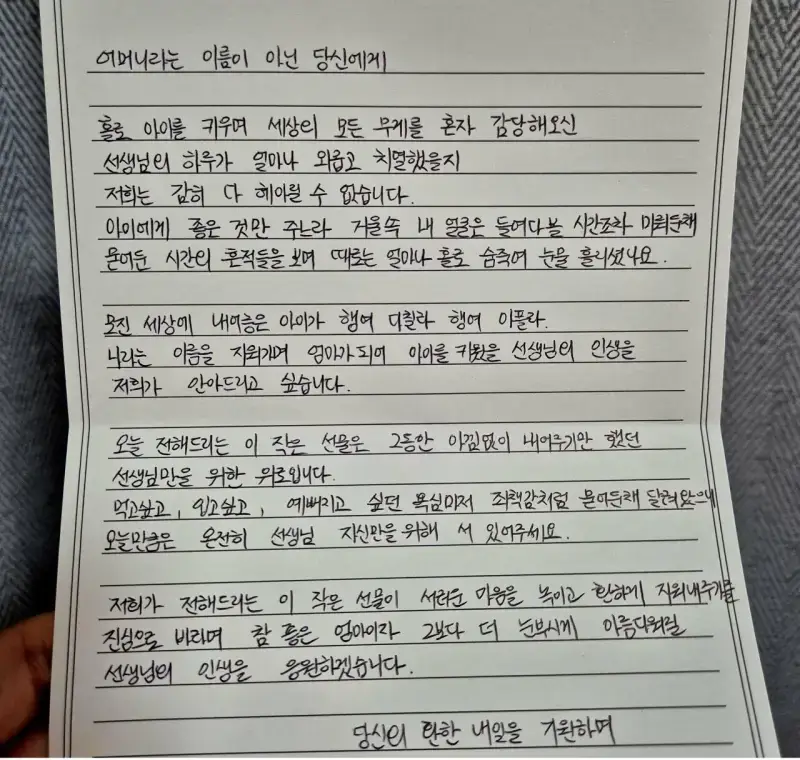 어머니라는 이름이 아닌 당신에게
홀로 아이를 키우며 세상의 모든 무게를 혼자 감당해오신
선생님의 하루가 얼마나 외롭고 치열했을지
저희는 감히 다 헤아릴 수 없습니다.
아이에게 좋은 것만 주느라 거울속 내 얼굴은 들여다볼 시간조차 미뤄둔채
묻어둔 시간의 흔적들을 보며 때로는 얼마나 홀로 숨죽여 눈물 흘리셨나요.
모진 세상에 내여놓은 아이가 행여 다칠라 행여 아플라.
나라는 이름을 지워가며 엄마가 되어 아이를 키웠을 선생님의 인생을
저희가 안아드리고 싶습니다.
오늘 전해드리는 이 작은 선물은 그동안 아낌없이 내어주기만 했던
선생님만을 위한 위로입니다.
먹고싶고, 입고싶고, 예뻐지고 싶던 욕심마저 죄책감처럼 묻어둔채 달려왔으니
오늘만큼은 온전히 선생님 자신만을 위해 서 있어주세요.
저희가 전해드리는 이 작은 선물이 서러운 마음을 녹이고 환하게 지워내주기를
진심으로 바라며 참 좋은 엄마이자 그보다 더 눈부시게 아름다워질
선생님의 인생을 응원하겠습니다.
당신의 환한 내일을 기원하며